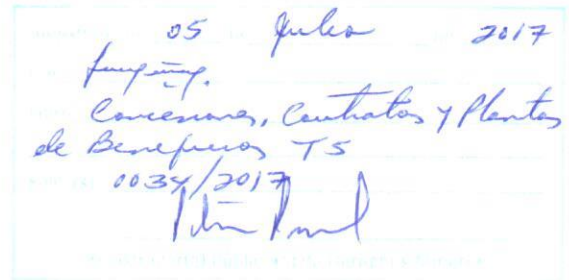 05 Julio 2017
Concesiones, Contratos y Plantas
de Beneficios TS
0034/2017